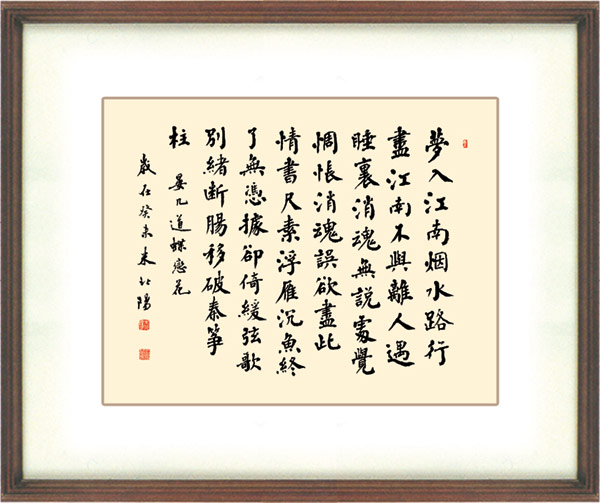 夢入江南烟水路行
盡江南不與離人遇
睡裏消魂無說處覺
惆悵消魂誤欲盡此
情書尺素浮雁沉魚終
了無憑據卻倚緩弦歌
別緒断腸移破秦筝
柱
晏几道蝶戀花
歲在癸未